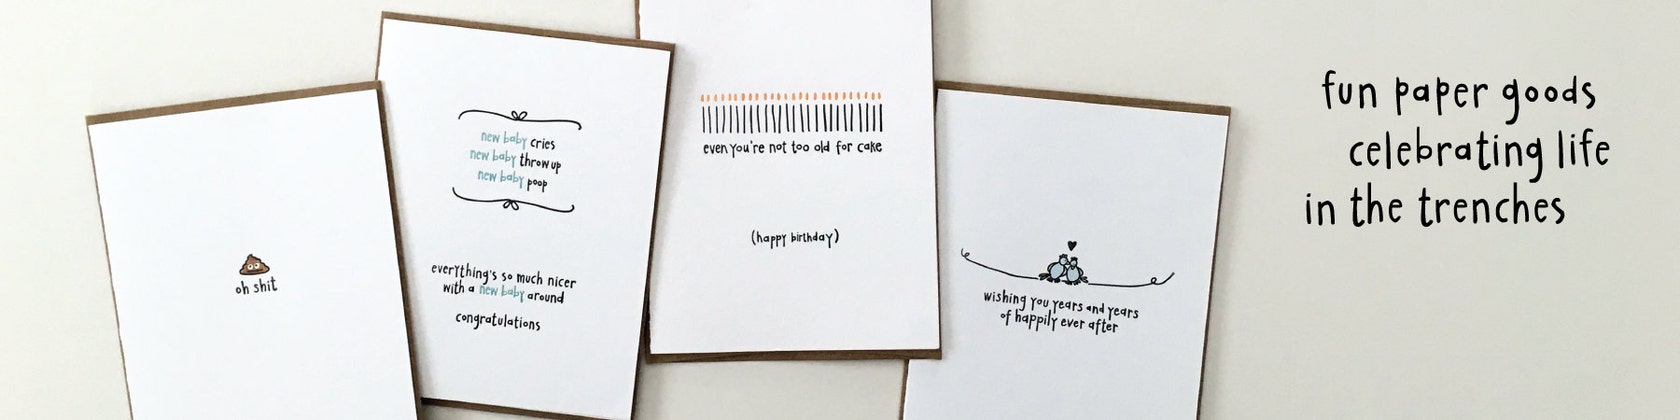 oh shit
new baby cries
new baby throw up
new baby poop
everything's so much nicer
with a new baby around
congratulations
even you're not too old for cake
(happy birthday)
wishing you years and years
of happily ever after
fun paper goods
celebrating life
in the trenches